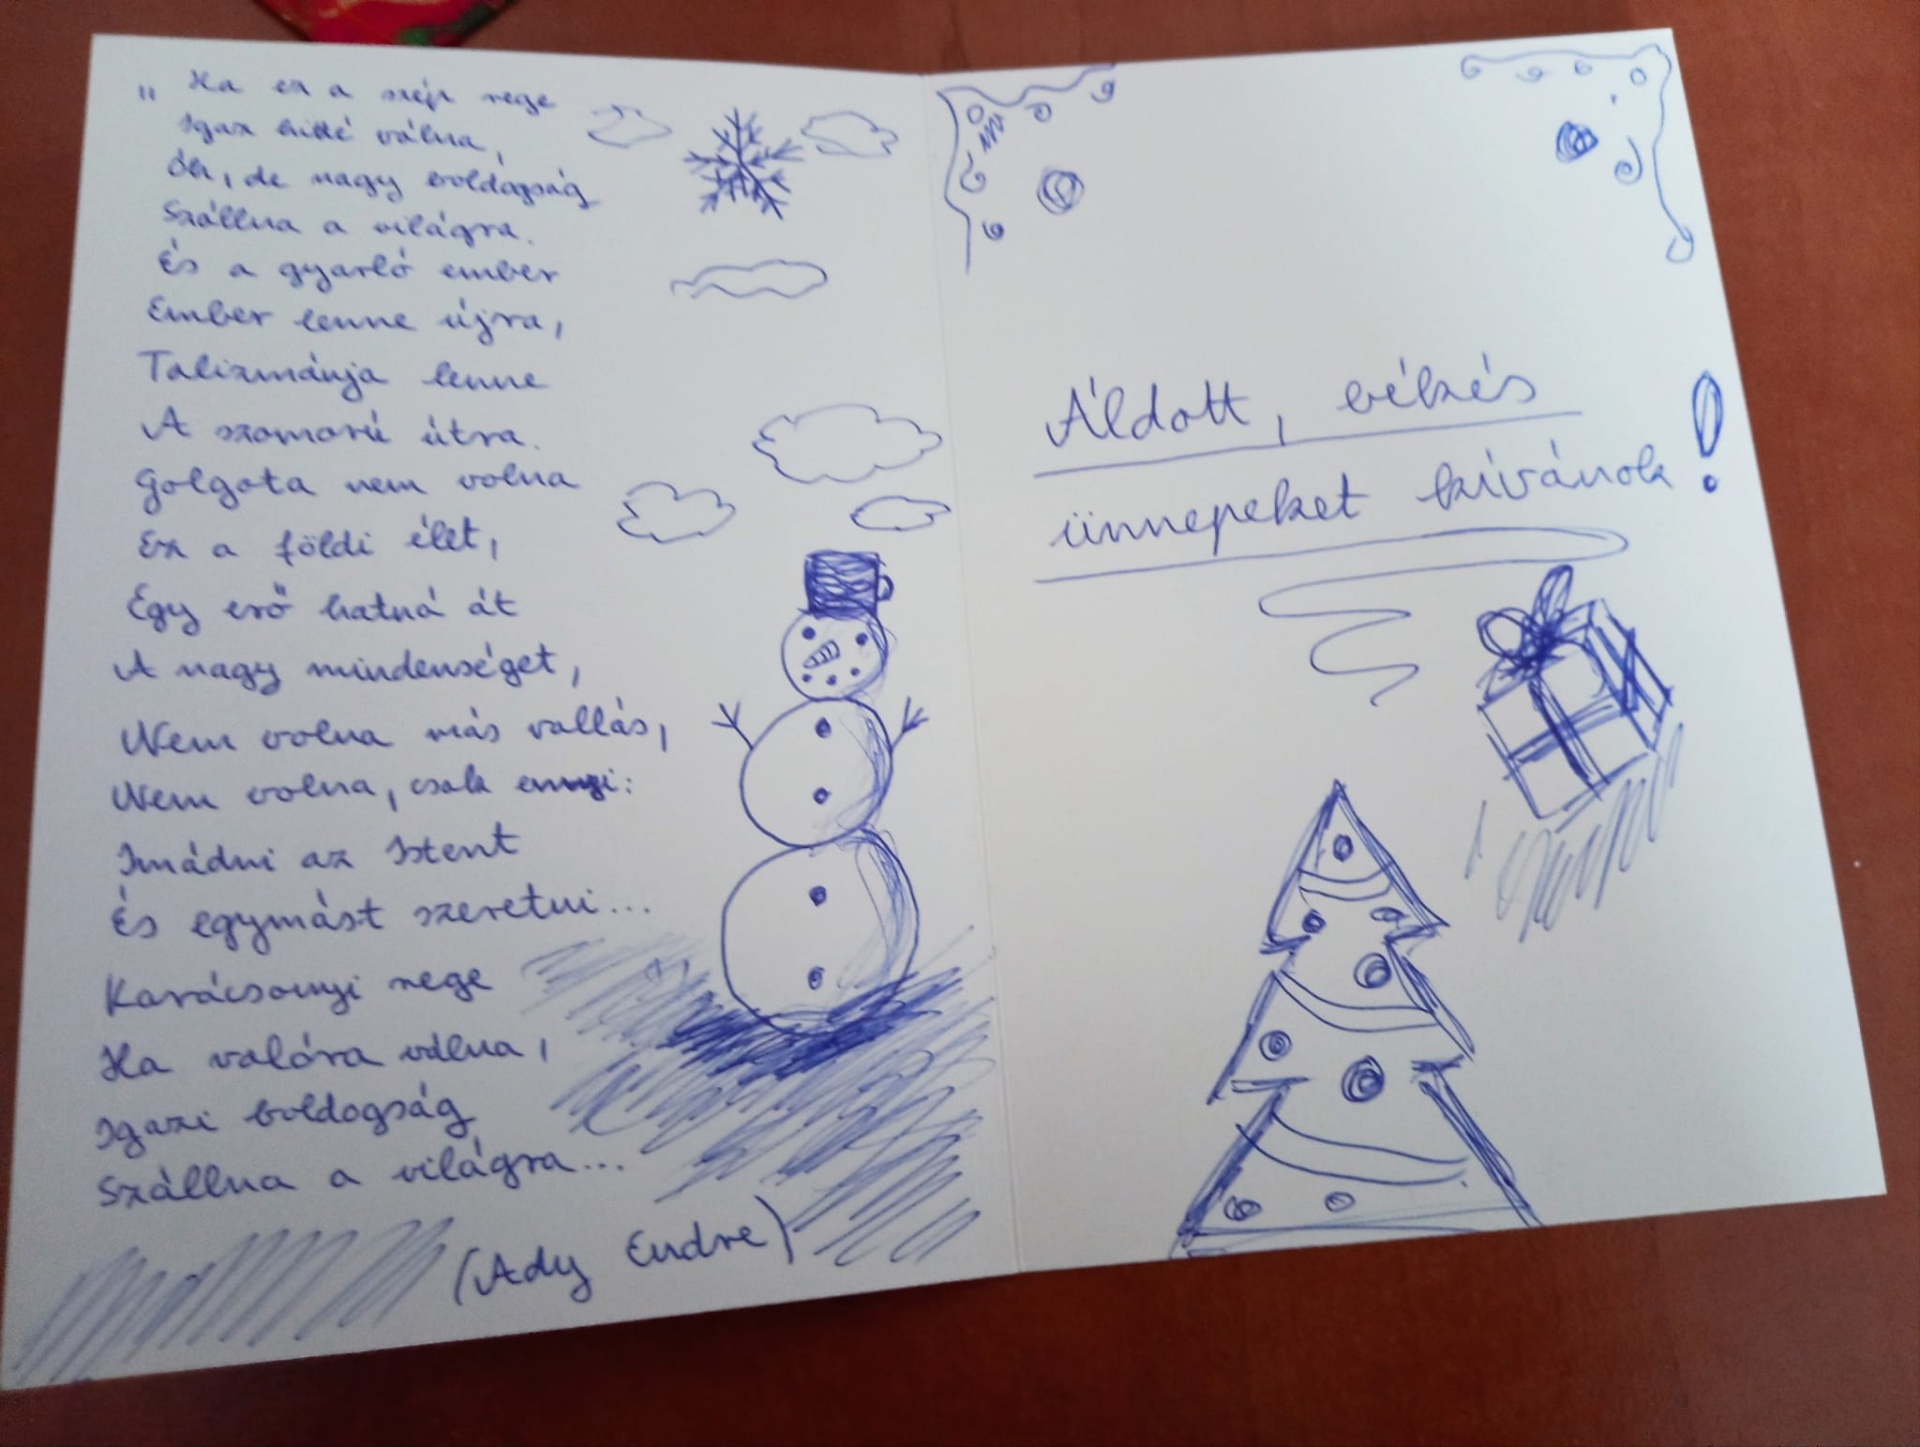 „Ha ez a szép rege
Igaz hitté válna,
Óh, de nagy boldogság
Szállna a világra.
És a gyarló ember
Ember lenne újra,
Talizmánja lenne
A szomorú útra.
Golgota nem volna
Ez a földi élet,
Egy erő hatná át
A nagy mindenséget,
Nem volna más vallás,
Nem volna, csak ennyi:
Imádni az Istent
És egymást szeretni...
Karácsonyi rege
Ha valóra válna,
Igazi boldogság
Szállna a világra...
(Ady Endre)
Áldott, békés
ünnepeket kívánok!